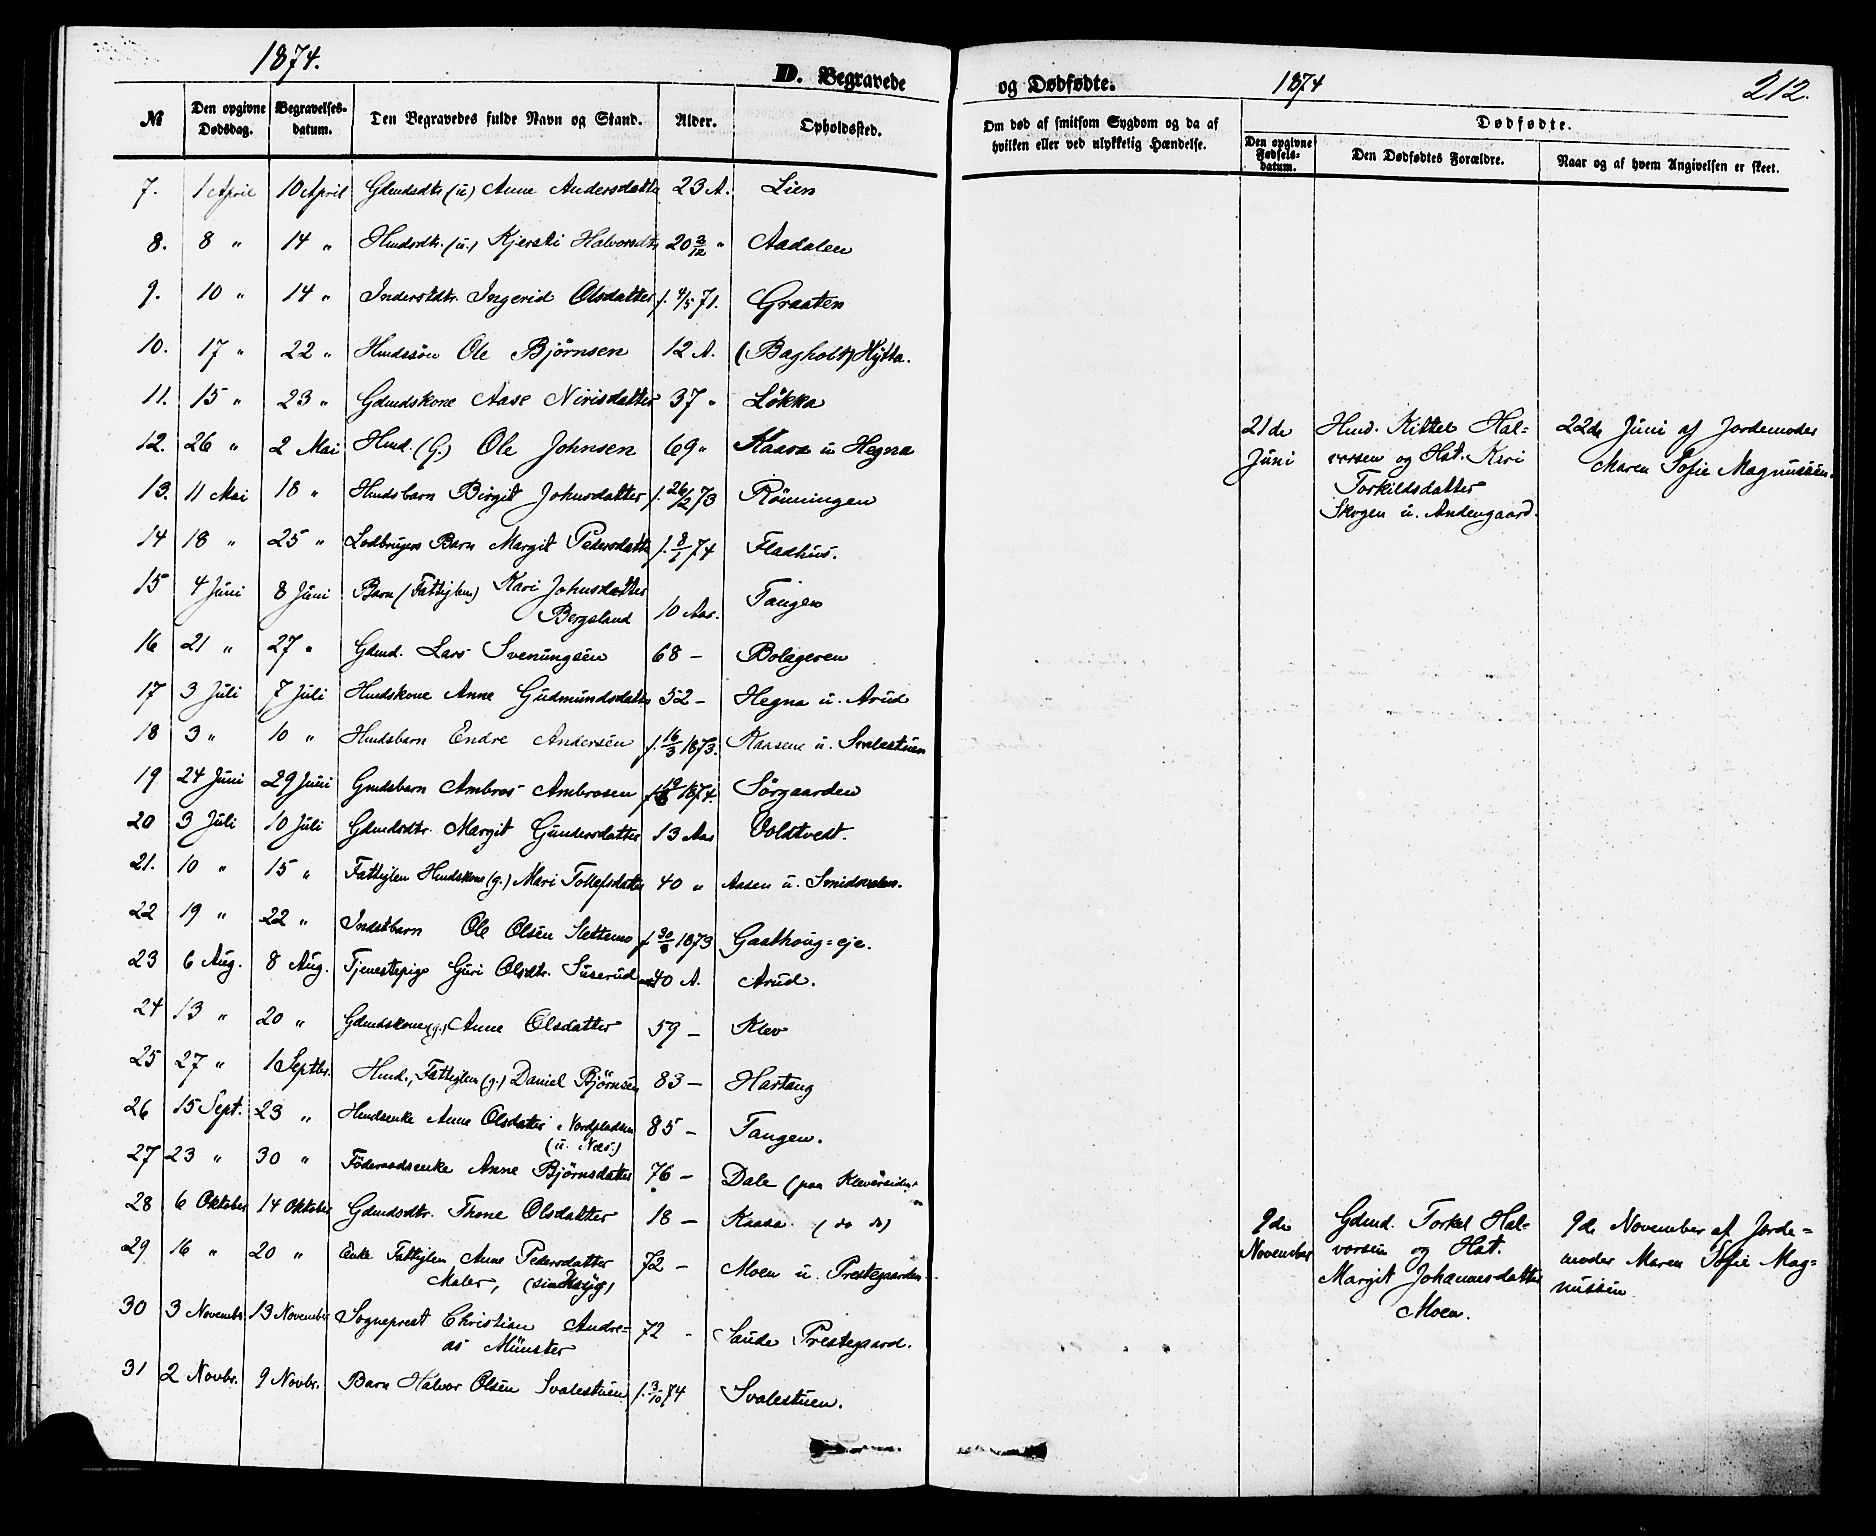 1874.
D. Begravede
№
Den opgivne Dødsdag.
Begravelses-datum.
Den Begravedes fulde Navn og Stand.
Alder.
Opholdssted.
7. 1 April 10 April Gdmdsdtr (u) Anne Andersdatter 23 A. Lien
8. 8 " 14 " Hmdsdtr. (u.) Kjersti Halvorsdtr 20 3/12 " Aadalen
9. 10 " 14 " Inderstdtr. Ingerid Olsdatter f. 4/5 71. Graaten
10. 17 " 22 " Hmdssøn Ole Bjørnsen 12 A. (Bagholt) Hytta.
11. 15 " 23 " Gdmdskone Aase Nirisdatter 37 " Løkka
12. 26 " 2 Mai Hmd. (G.) Ole Johnsen 69 " Kaasa u Hegna
13. 11 Mai 18 " Hmdsbarn Birgit Johnsdatter f. 26/2 73 Rönningen
14 18 " 25 " Lodbrugers Barn Margit Pedersdatter f. 8/1 74 Fladhus.
15 4 Juni 8 Juni Barn (Fattiglem) Kari Johnsdatter
Bergsland 10 Aar. Tangen
16 21 " 27 " Gdmd. Lars Svenungsen 68 — Bolageren
17 3 Juli 7 Juli Hmdskone Anne Gudmundsdatter 52 — Hegna u. Arud
18 3 " 10 " Hmdsbarn Endre Andersen f. 16/3 1873. Kaasene u. Svalestuen
19 24 Juni 29 Juni Gmdsbarn Ambros Ambrosen 1874. Sörgaarden
20 3 Juli 10 Juli Gdmdsdtr. Margit Gundersdatter 13 Aar Voldtvedt.
21. 10 " 15 " Fattiglem Hmdskone (g.) Mari Tollefsdatter 40 " Aasen u.
22 19 " 22 " Indstbarn Ole Olsen Slettemo 1873 Gaathoug=eje.
23 6 Aug. 8 Aug. Tjenestepige Guri Olsdtr. Suserud 40 A. Arud.
24 13 " 20 " Gdmdskone (g.) Anne Olsdatter 59 — Klev
25 27 " 1 Septbr. Hmd., Fattiglem (g.) Daniel Bjørnsen 83 — Hartaug
26 15 Sept. 23 " Hmdsenke Anne Olsdatter 85 — Tangen.
(u. Næs.)
27 23 " 30 " Föderaadsenke Anne Bjørnsdatter 76 — Dale (paa Kleversiden)
28 6 Oktober 14 Oktober Gdmdsdtr. Thone Olsdatter 18 — Kaasa (do do)
29 16 " 20 " Enke Fattiglem Anne Pedersdatter 72 — Moen u. Prestegaarden.
Maler, (sindssyg)
30 3 Novembr. 13 November Sogneprest Christian Andre=
as Münster 72 - Saude Prestegaard.
31 2 Novbr. 9 Novbr. Barn Halvor Olsen Svalestuen f. 3/10 74 Svalestuen.
og Dødfødte.
1874
212.
Om død af smitsom Sygdom og da af hvilken eller ved ulykkelig Hændelse.
Dødfødte.
Den opgivne Fødsels-datum.
Den Dødfødtes Forældre.
Naar og af hvem Angivelsen er skeet.
21de Juni
Hmd. Kittel Hal=
vorsen og Hst. Kari
Torkildsdatter
Skogen u. Andengaard.
22de Juni af Jordemoder
Maren Sofie Magnussen.
9de November
Gdmd. Torkel Hal=
vorsen og Hst.
Margit Johannesdatter
Moen.
9de November af Jorde=
moder Maren Sofie Mag=
nussen